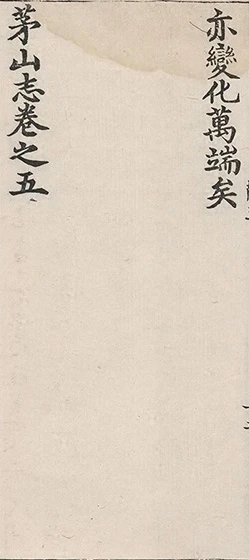 亦變化萬端矣
茅山志卷之五